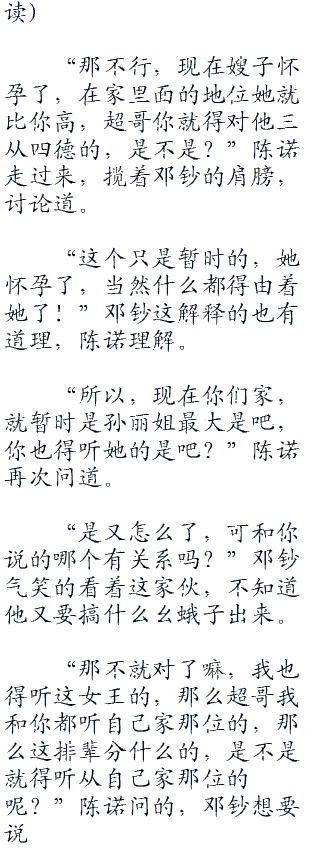 读）
“那不行，现在嫂子怀
孕了，在家里面的地位她就
比你高，超哥你就得对他三
从四德的，是不是？”陈诺
走过来，揽着邓钞的肩膀，
讨论道。
“这个只是暂时的，她
怀孕了，当然什么都得由着
她了！”邓钞这解释的也有
道理，陈诺理解。
“所以，现在你们家，
就暂时是孙丽姐最大是吧，
你也得听她的是吧？”陈诺
再次问道。
“是又怎么了，可和你
说的哪个有关系吗？”邓钞
气笑的看着这家伙，不知道
他又要搞什么幺蛾子出来。
“那不就对了嘛，我也
得听这女王的，那么超哥我
和你都听自己家那位的，那
么这排辈分什么的，是不是
就得听从自己家那位的
呢？”陈诺问的，邓钞想要
说